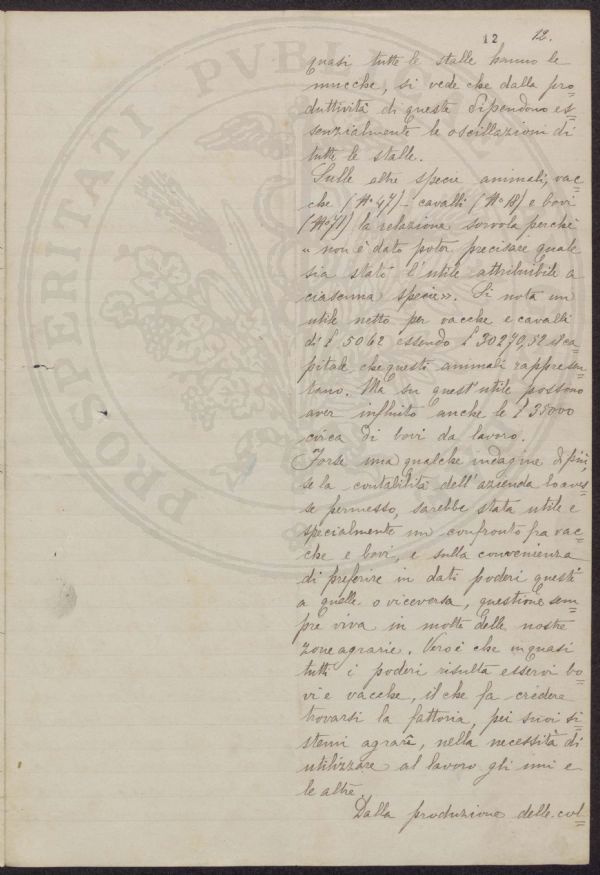 12 12.
quasi tutte le stalle hanno le
mucche, si vede che dalla pro=
duttività di queste dipendono es=
senzialmente le oscillazioni di
tutte le stalle.
Sulle altre specie animali, vac=
che (N° 47) - cavalli (N° 18) e bovi
(N° 71) la relazione sorvola perché
« non è dato poter precisare quale
sia stato l'utile attribuibile a
ciascuna specie ». Si nota un
utile netto per vacche e cavalli
di £ 5062 essendo £ 30270,52 il ca=
pitale che questi animali rappresen=
tano. Ma su quest'utile possono
aver influito anche le £ 35000
circa di bovi da lavoro.
Forse una qualche indagine di più,
se la contabilità dell'azienda lo aves=
se permesso, sarebbe stata utile e
specialmente un confronto fra vac=
che e bovi, e sulla convenienza
di preferire in dati poderi questi
a quelle o viceversa, questione sem=
pre viva in molte delle nostre
zone agrarie. Vero è che in quasi
tutti i poderi risulta esservi bo=
vi e vacche, il che fa credere
trovarsi la fattoria, pei suoi si=
stemi agrarî, nella necessità di
utilizzare al lavoro gli uni e
le altre.
Dalla produzione delle col=
PROSPERITATI PVBLICAE